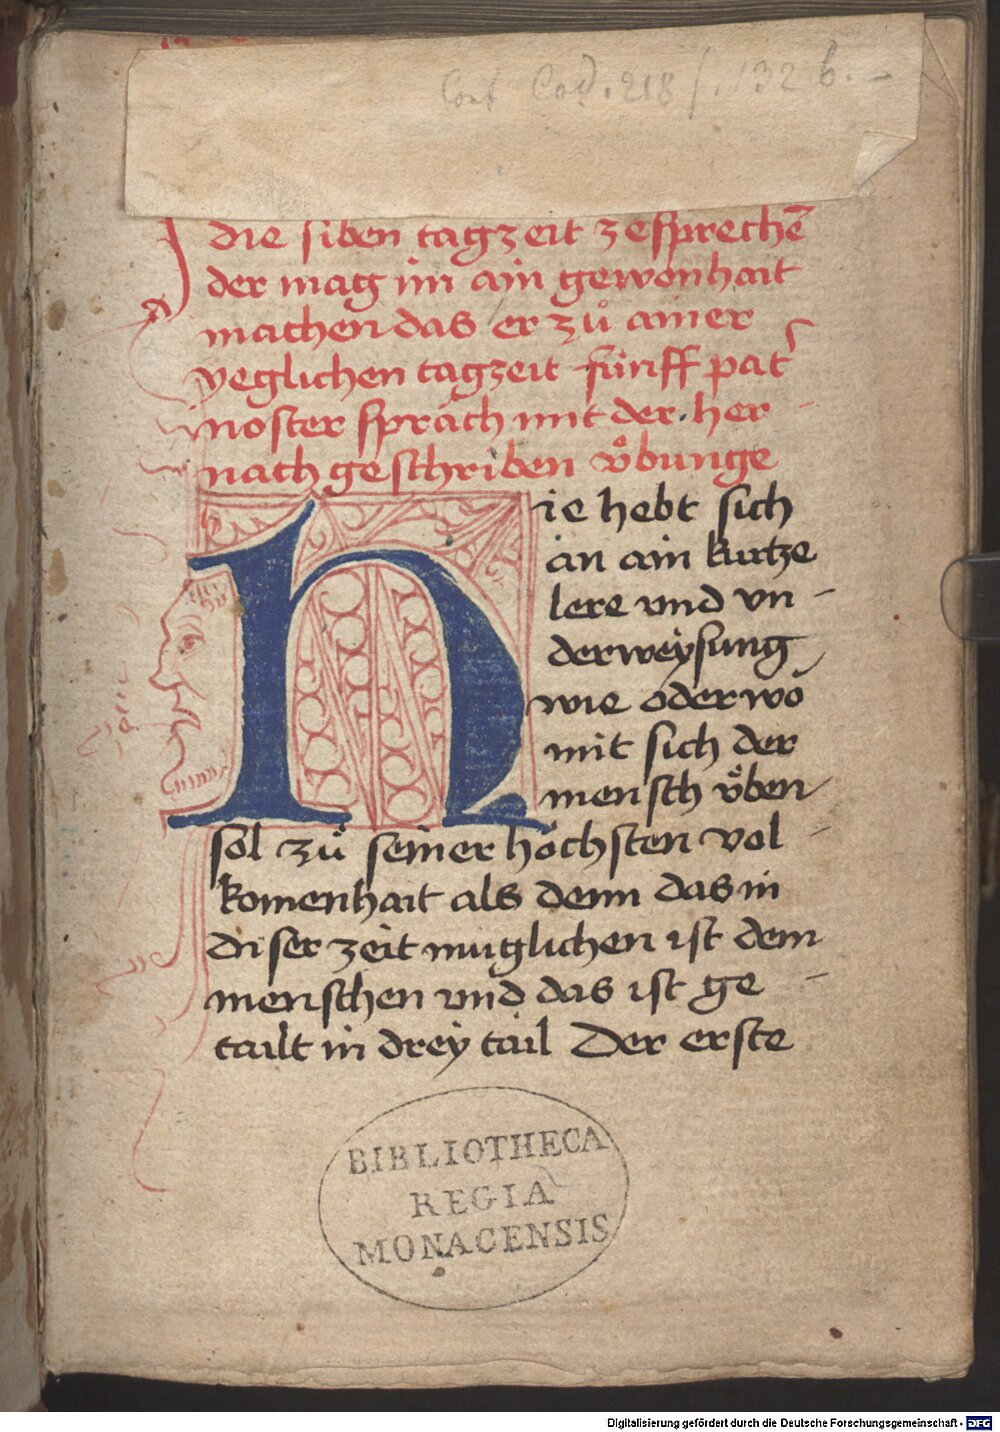 Conf Cod. 218 f. 132 b. –
die siben tagzeit zesprechē
der mag im ain gewonhait
machen das er zů ainer
yeglichen tagzeit fünff pat
noster spräch mit der her
nach geschriben v̊bunge
Hie hebt sich
an ain kurtze
lere vnd vn
derweysung
wie oder wō
mit sich der
mensch v̊ben
sol zů seiner höchsten vol
komenhait als denn das in
diser zeit muglichen ist dem
menschen vnd das ist ge
tailt in drey tail Der erste
BIBLIOTHECA
REGIA
MONACENSIS
Digitalisierung gefördert durch die Deutsche Forschungsgemeinschaft - DFG